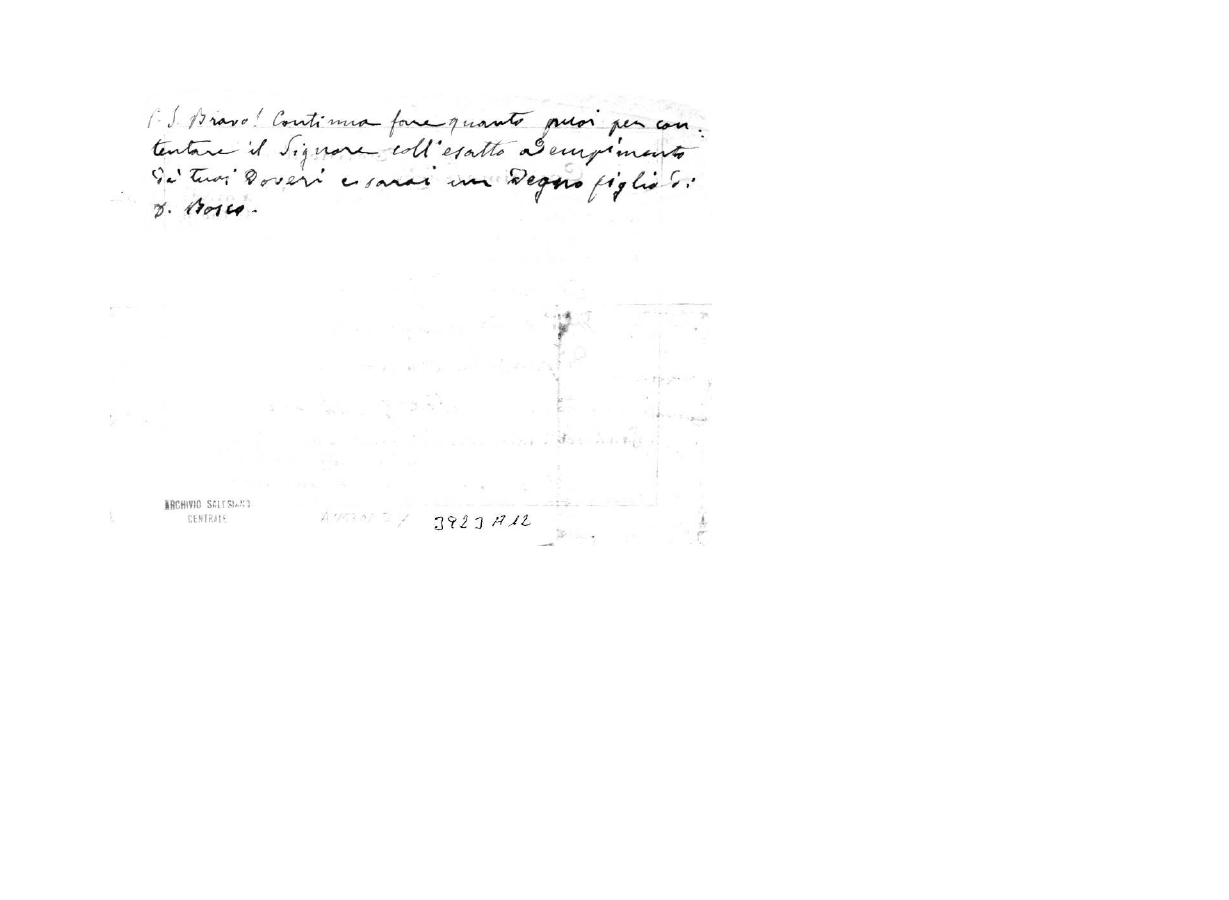 P. S. Bravo! Continua fare quanto puoi per con-
tentare il Signore coll'esatto adempimento
de' tuoi doveri e sarai un degno figlio di
D. Bosco.
ARCHIVIO SALESIANO
CENTRALE
3923 A 12